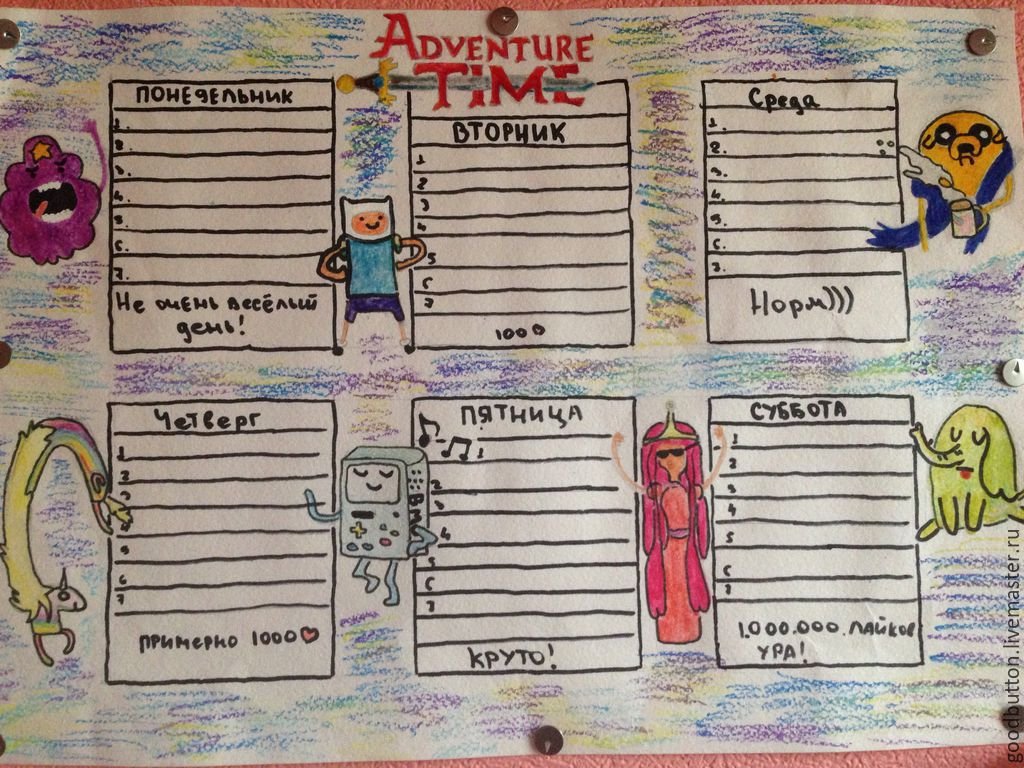 ADVENTURE
TIME
ПОНЕДЕЛЬНИК
1.
2.
3.
4.
5.
6.
7.
Не очень весёлый
день!
ВТОРНИК
1
2
3
4
5
6
7
1000
Среда
1.
2.
3.
4.
5.
6.
7.
Норм)))
Четверг
1
2
3
5
6
7
примерно 1000
ПЯТНИЦА
1
2
3
4
5
6
7
КРУТО!
BMO
СУББОТА
1
2
3
4
5
6
7
1.000.000 ЛАЙКОВ
УРА!
goodbutton.livemaster.ru